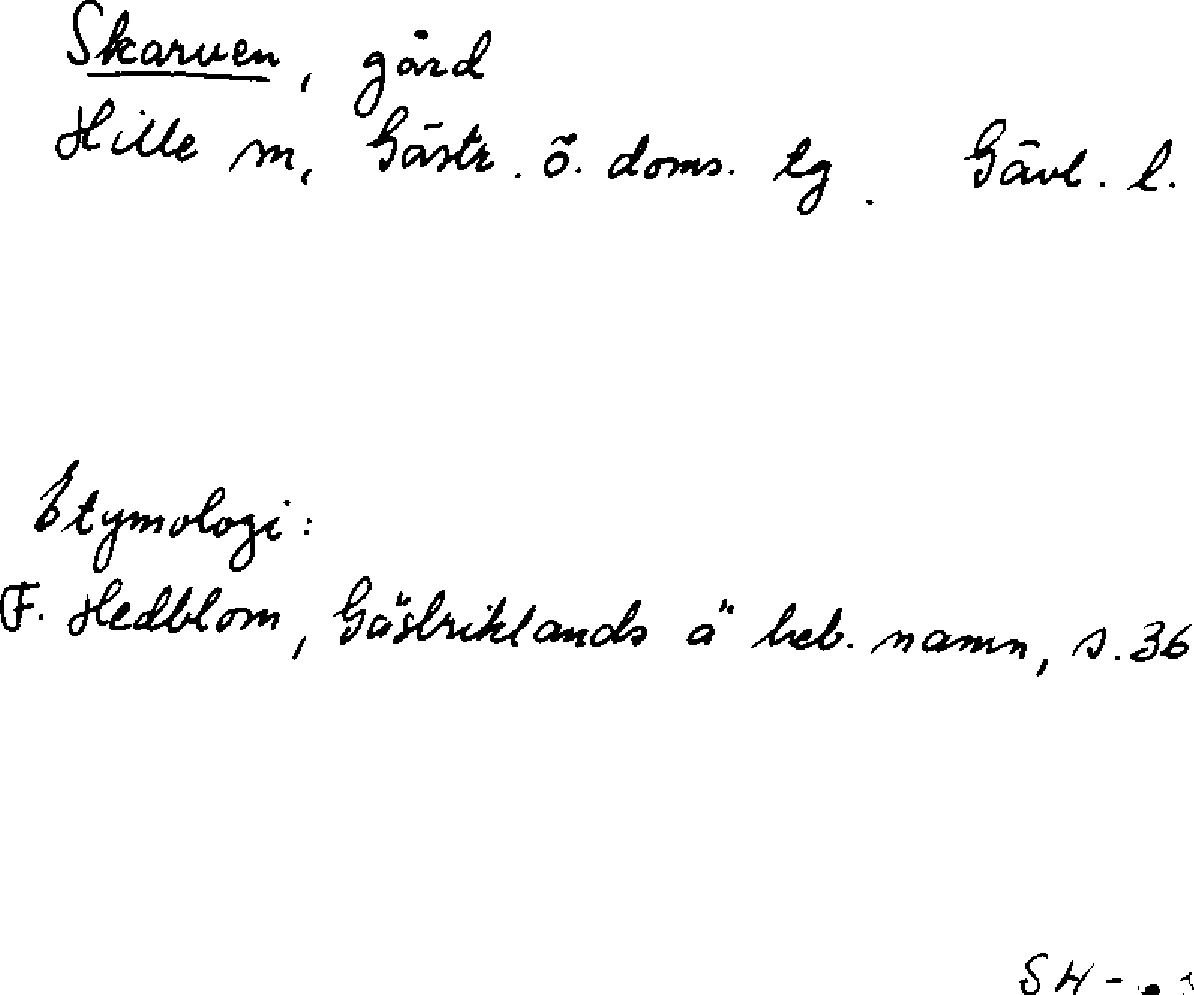 Skarven, gård
Hille sn, Gästr. ö. doms. tg. Gävl. l.
Etymologi:
F. Hedblom, Gästriklands ä beb. namn, s. 36
SH -